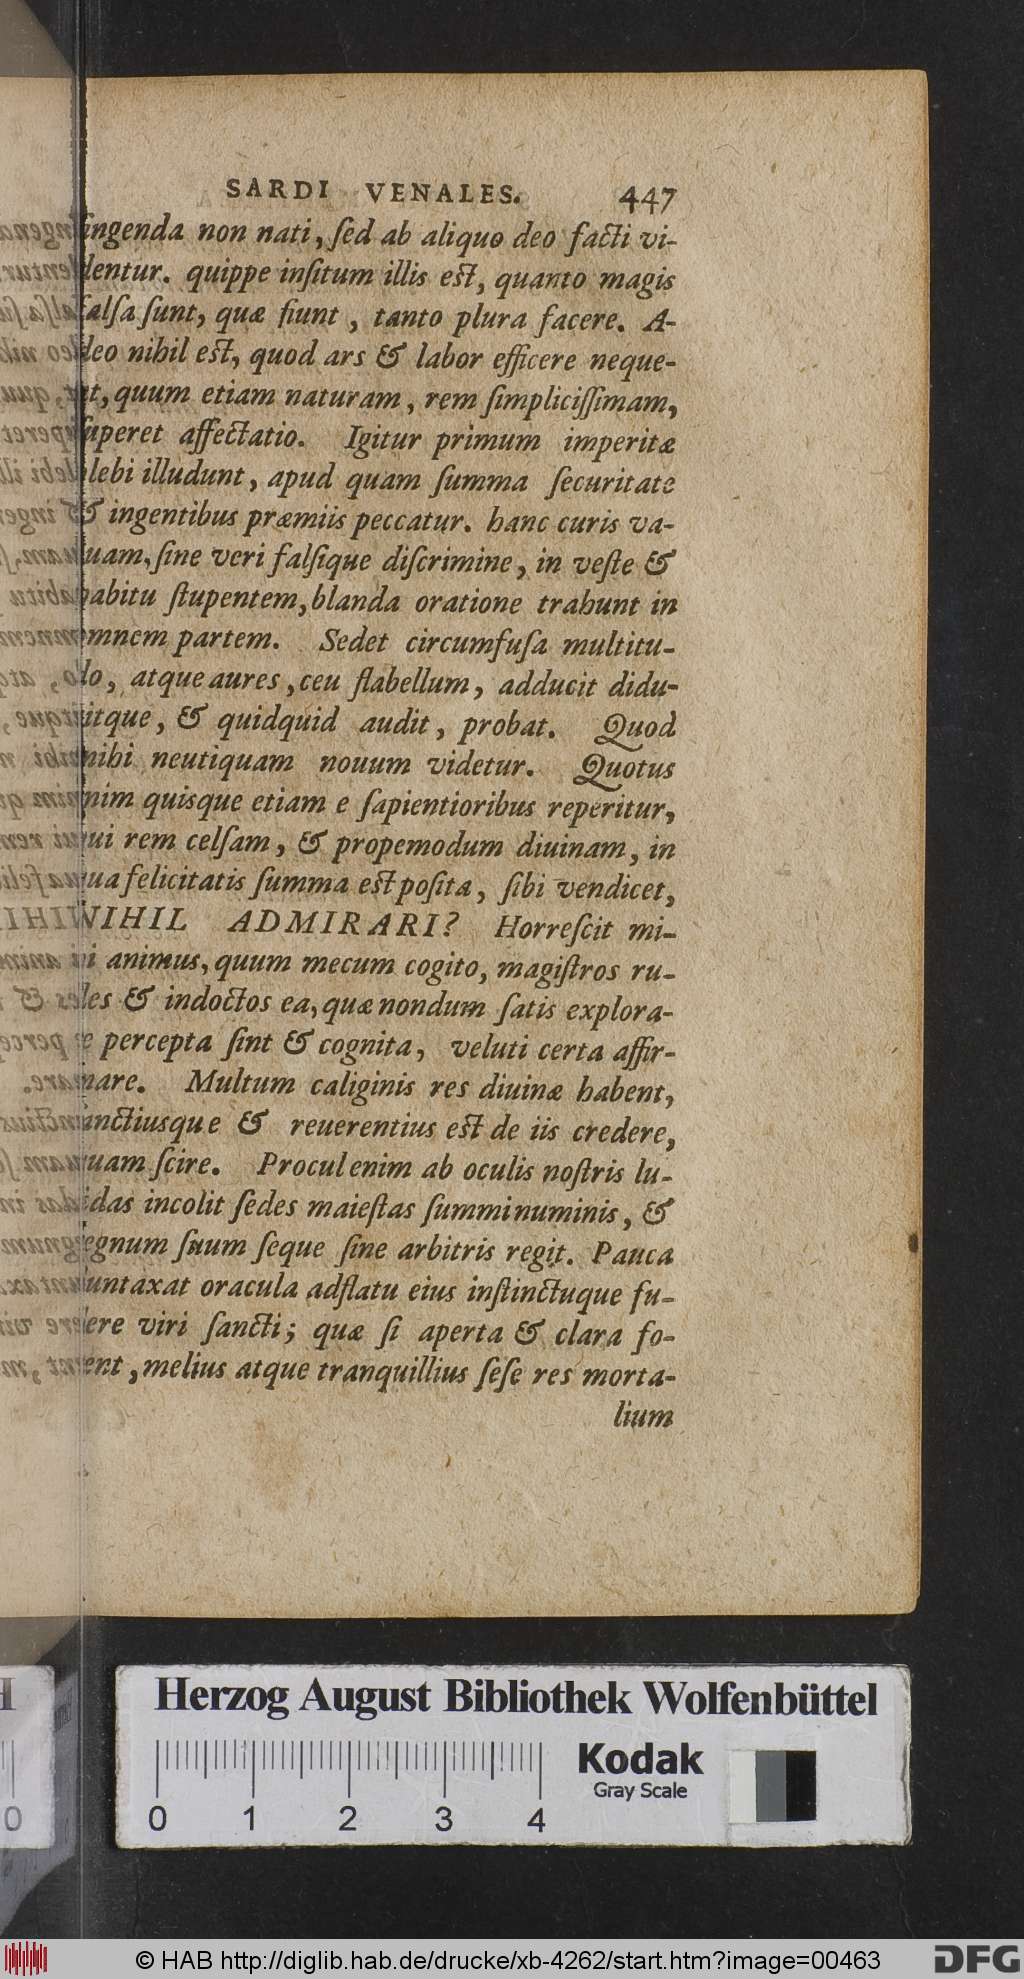 SARDI VENALES. 447
fingenda non nati, ſed ab aliquo deo facti vi-
dentur. quippe inſitum illis eſt, quanto magis
falſa ſunt, quæ fiunt, tanto plura facere. A-
deo nihil eſt, quod ars & labor efficere neque-
at, quum etiam naturam, rem ſimpliciſſimam,
ſuperet affectatio. Igitur primum imperitæ
plebi illudunt, apud quam ſumma ſecuritate
& ingentibus præmiis peccatur. hanc curis va-
cuam, ſine veri falſique diſcrimine, in veſte &
habitu ſtupentem, blanda oratione trahunt in
omnem partem. Sedet circumfuſa multitu-
do, atque aures, ceu flabellum, adducit didu-
citque, & quidquid audit, probat. Quod
mihi neutiquam nouum videtur. Quotus
enim quisque etiam e ſapientioribus reperitur,
qui rem celſam, & propemodum diuinam, in
qua felicitatis ſumma eſt poſita, ſibi vendicet,
NIHIL ADMIRARI? Horreſcit mi-
hi animus, quum mecum cogito, magiſtros ru-
des & indoctos ea, quæ nondum ſatis explora-
te percepta ſint & cognita, veluti certa affir-
mare. Multum caliginis res diuinæ habent,
ſanctiusque & reuerentius eſt de iis credere,
quam ſcire. Procul enim ab oculis noſtris lu-
cidas incolit ſedes maieſtas ſummi numinis, &
regnum ſuum ſeque ſine arbitris regit. Pauca
duntaxat oracula adflatu eius inſtinctuque fu-
dere viri ſancti; quæ ſi aperta & clara fo-
rent, melius atque tranquillius ſeſe res morta-
lium
Herzog August Bibliothek Wolfenbüttel
0 1 2 3 4
Kodak
Gray Scale
© HAB http://diglib.hab.de/drucke/xb-4262/start.htm?image=00463
DFG